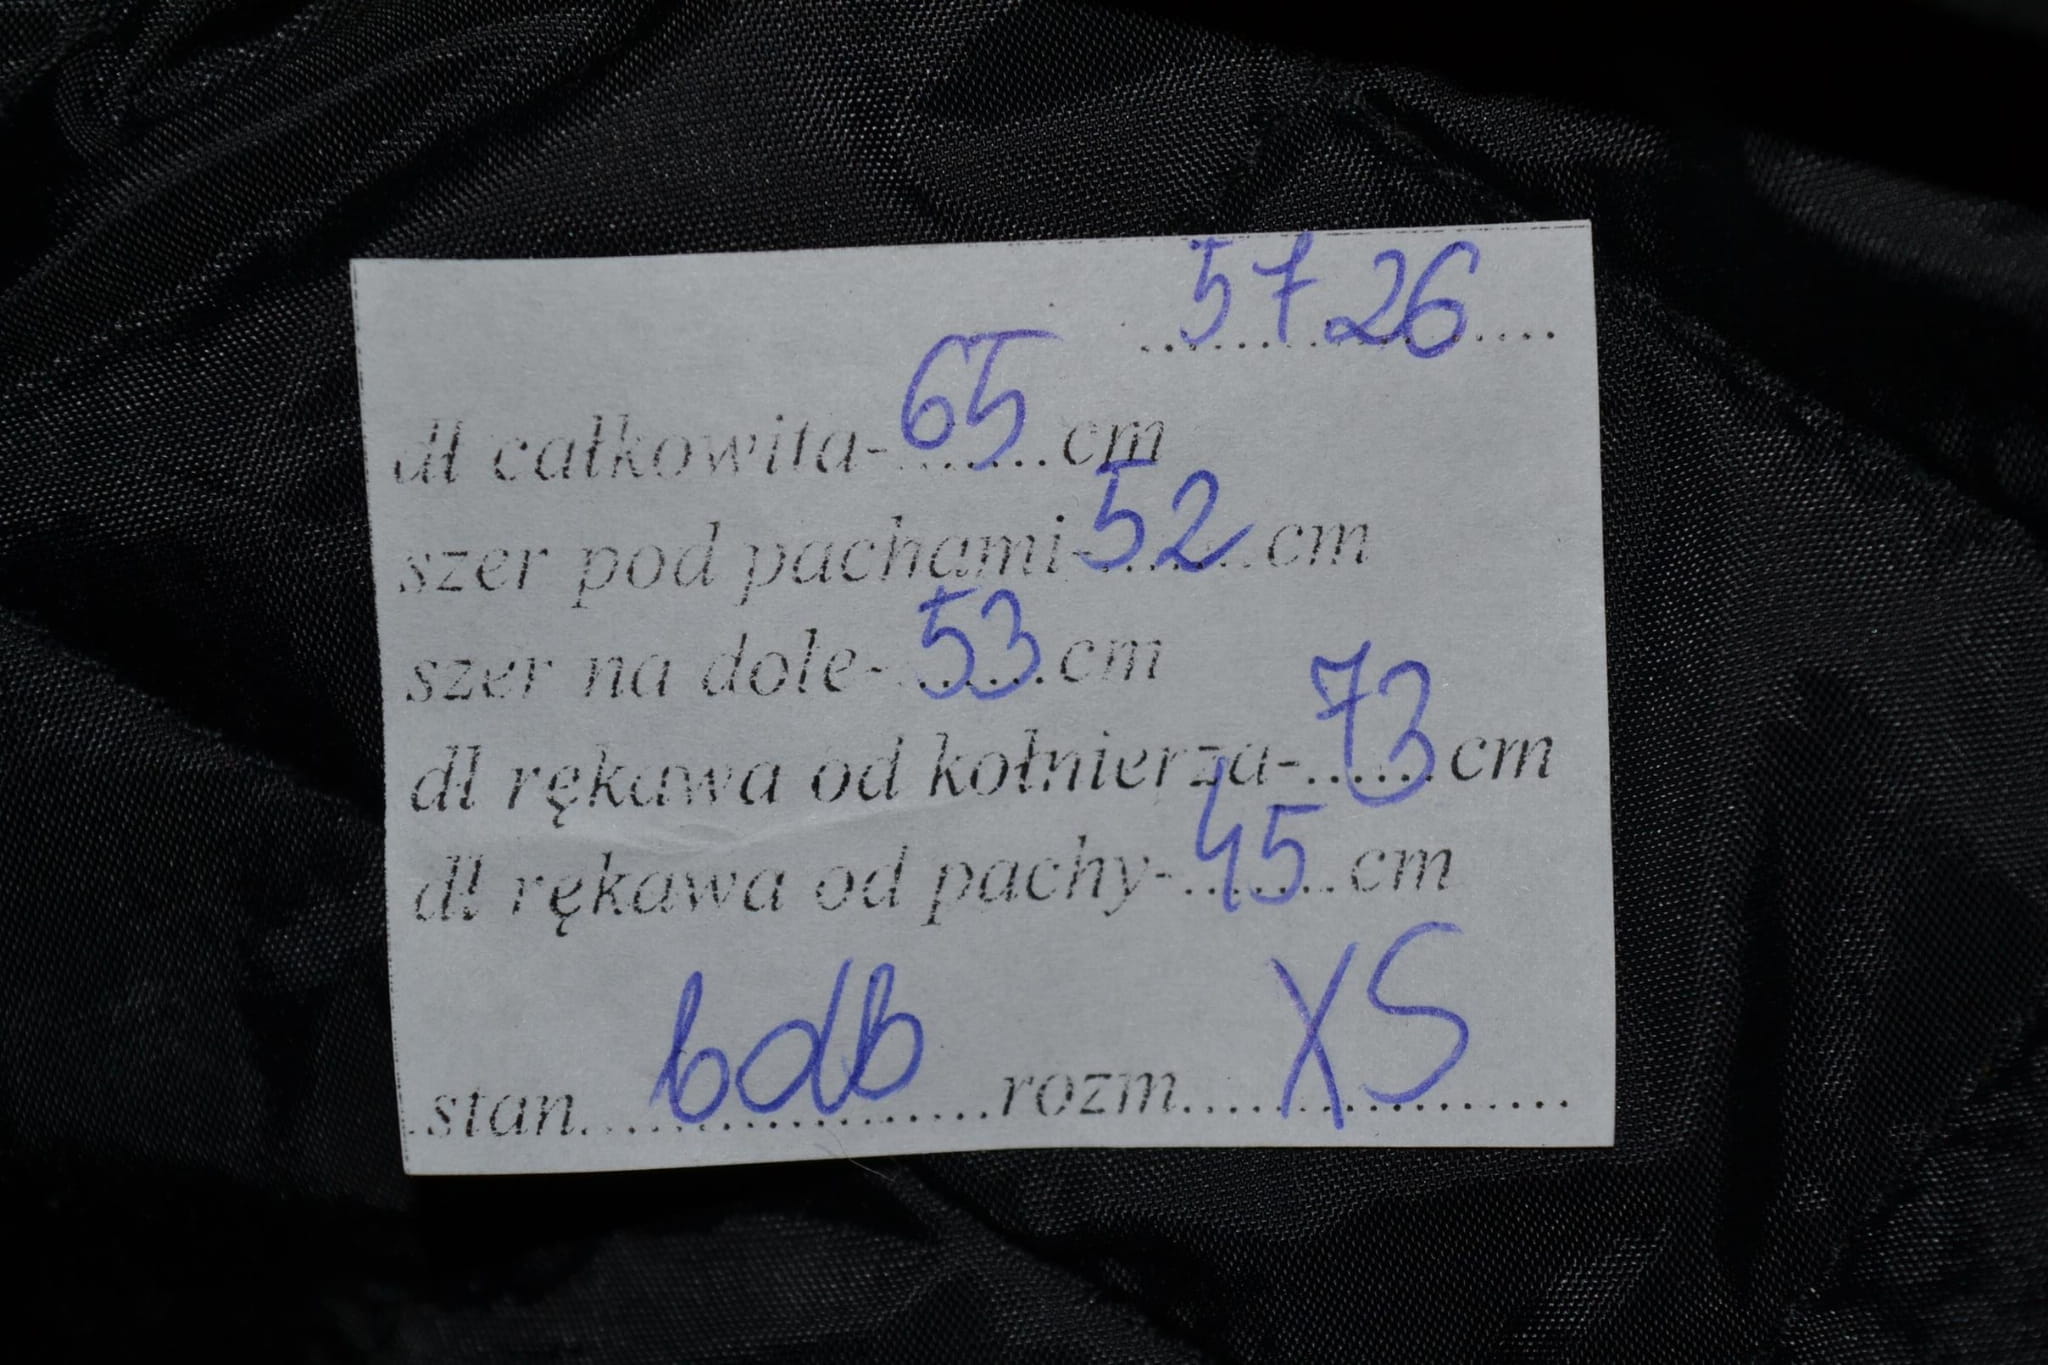 5726
dł całkowita-65cm
szer pod pachami-52cm
szer na dole-53cm
dł rękawa od kołnierza-73cm
dł rękawa od pachy-45cm
stan bdb rozm XS